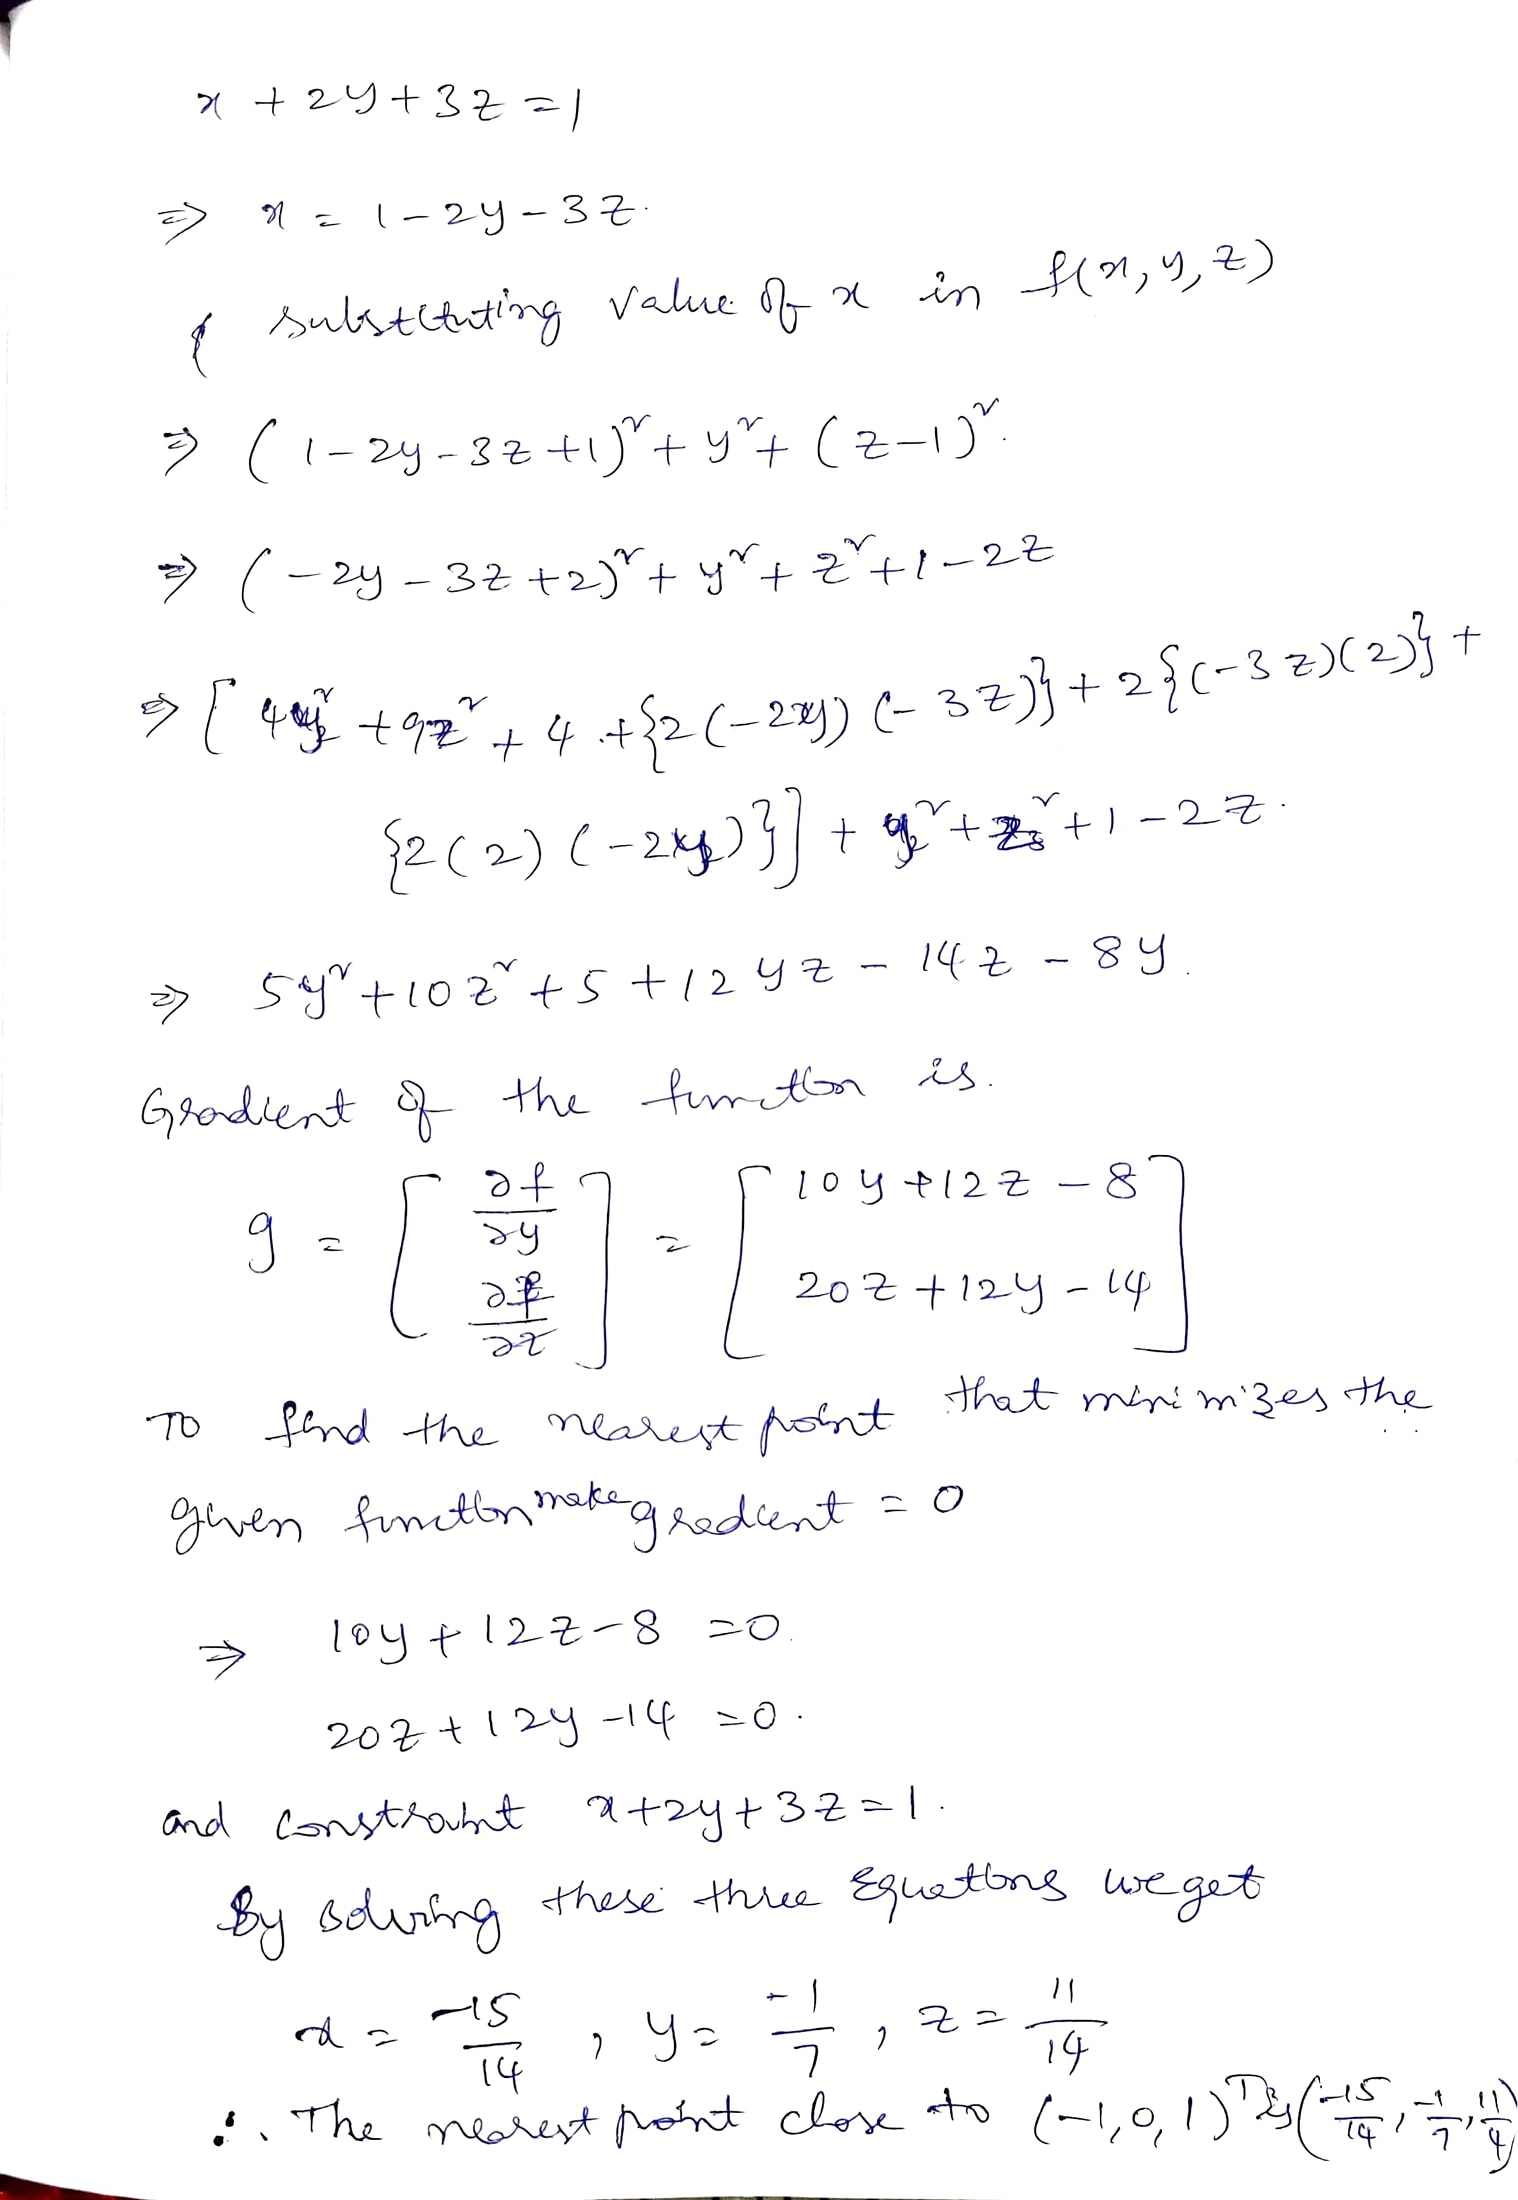 x + 2y + 3z = 1
⇒ x = 1 - 2y - 3z.
substituting value of x in f(x, y, z)
⇒ (1 - 2y - 3z + 1)² + y² + (z - 1)².
⇒ (-2y - 3z + 2)² + y² + z² + 1 - 2z
⇒ [4y² + 9z² + 4 + {2(-2y)(-3z)} + 2{(-3z)(2)} +
{2(2)(-2y)}] + y² + z² + 1 - 2z.
⇒ 5y² + 10z² + 5 + 12yz - 14z - 8y.
Gradient of the function is.
g = [∂f/∂y ∂f/∂z] = [10y + 12z - 8 20z + 12y - 14]
To find the nearest point that minimizes the
given function make gradient = 0
⇒ 10y + 12z - 8 = 0.
20z + 12y - 14 = 0.
and constraint x + 2y + 3z = 1.
By solving these three Equations we get
x = -15/14, y = -1/7, z = 11/14
∴ The nearest point close to (-1, 0, 1)ᵀ is (-15/14, -1/7, 11/4)